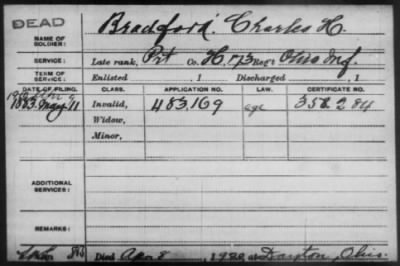 DEAD
NAME OF SOLDIER: Bradford, Charles H.
SERVICE: Late rank, Pvt Co. H, 173 Reg't Ohio Inf.
TERM OF SERVICE: Enlisted , 1 Discharged , 1
DATE OF FILING. CLASS. APPLICATION NO. LAW. CERTIFICATE NO.
1883 May 11 Invalid, 483169 age 356284
Widow,
Minor,
ADDITIONAL SERVICES:
REMARKS:
Died Apr 8, 1920, at Dayton, Ohio.